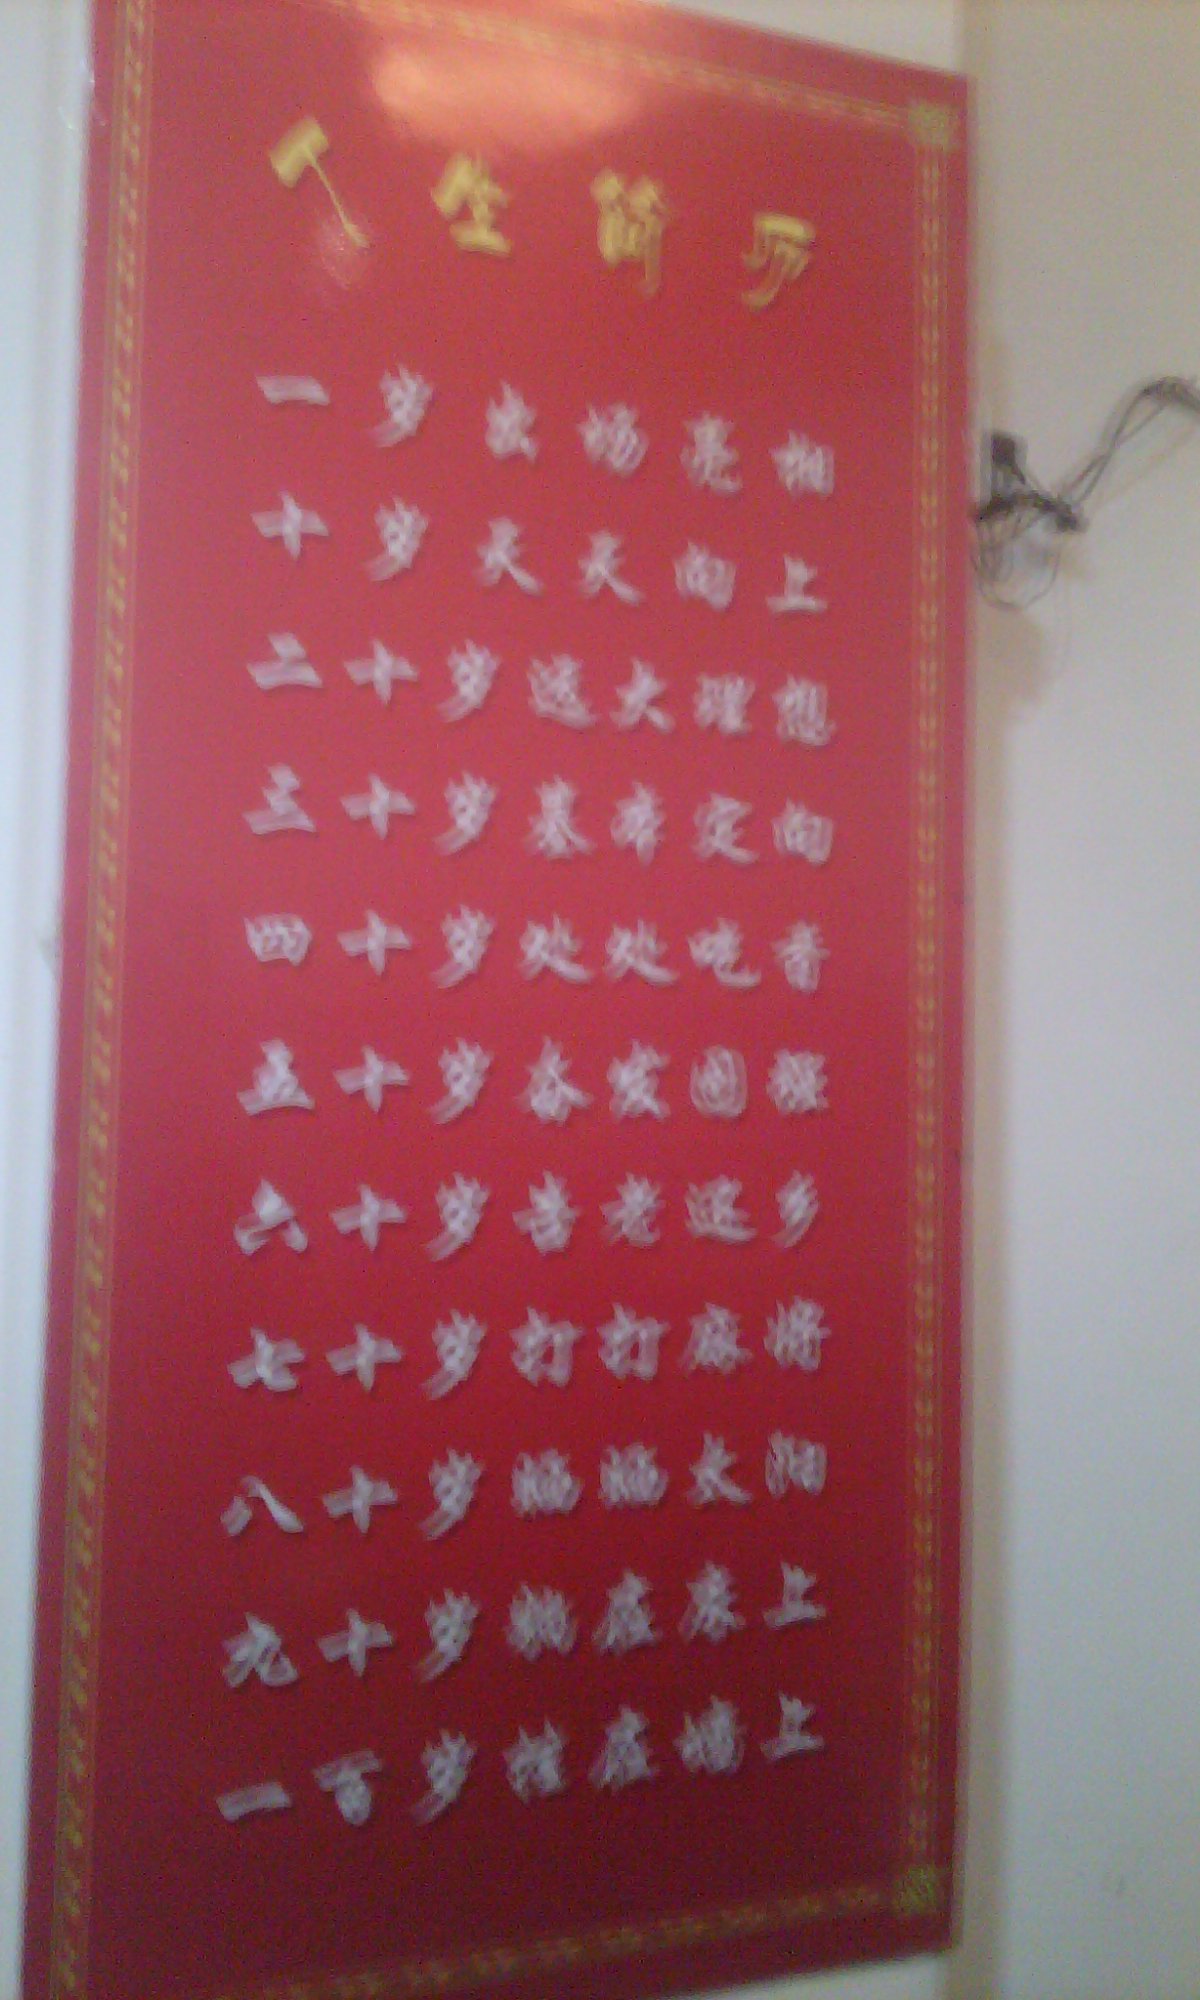 人生简历
一岁出场亮相
十岁天天向上
二十岁远大理想
三十岁基本定向
四十岁处处吃香
五十岁奋发图强
六十岁告老还乡
七十岁打打麻将
八十岁晒晒太阳
九十岁躺在床上
一百岁挂在墙上